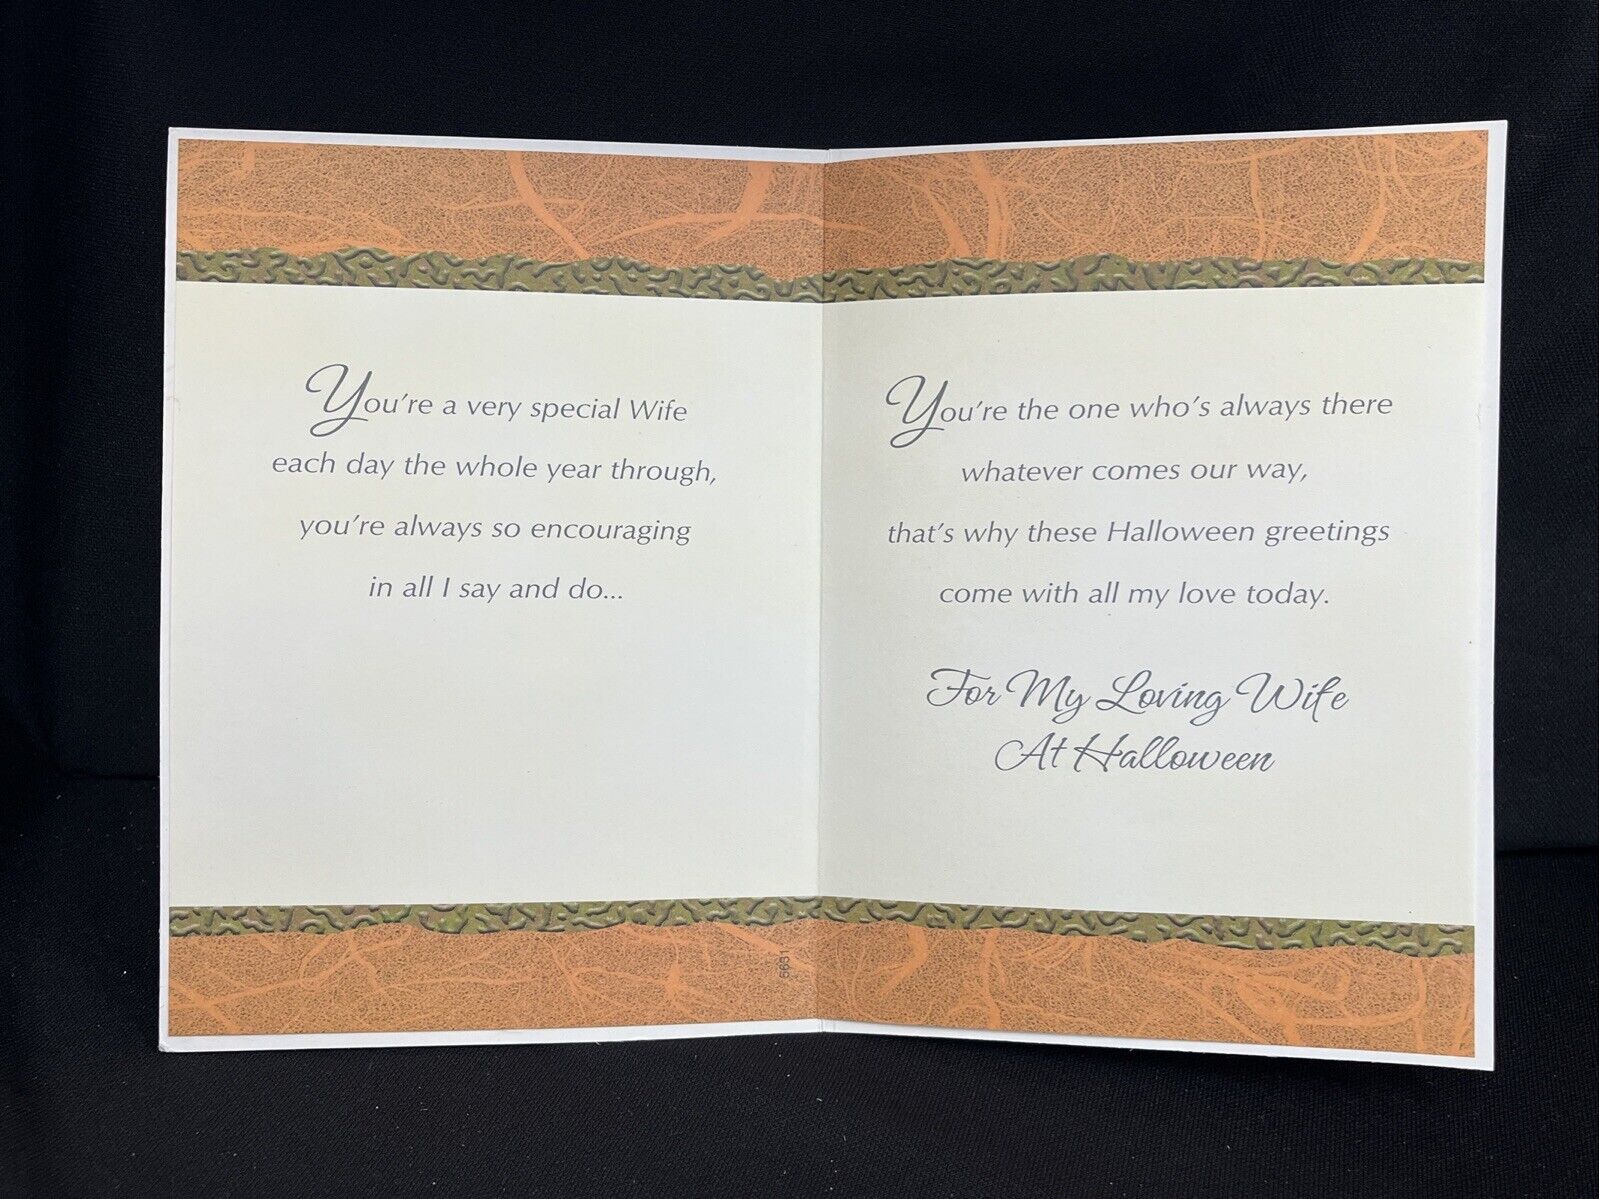 You're a very special Wife
each day the whole year through,
you're always so encouraging
in all I say and do...
You're the one who's always there
whatever comes our way,
that's why these Halloween greetings
come with all my love today.
For My Loving Wife
At Halloween
5651